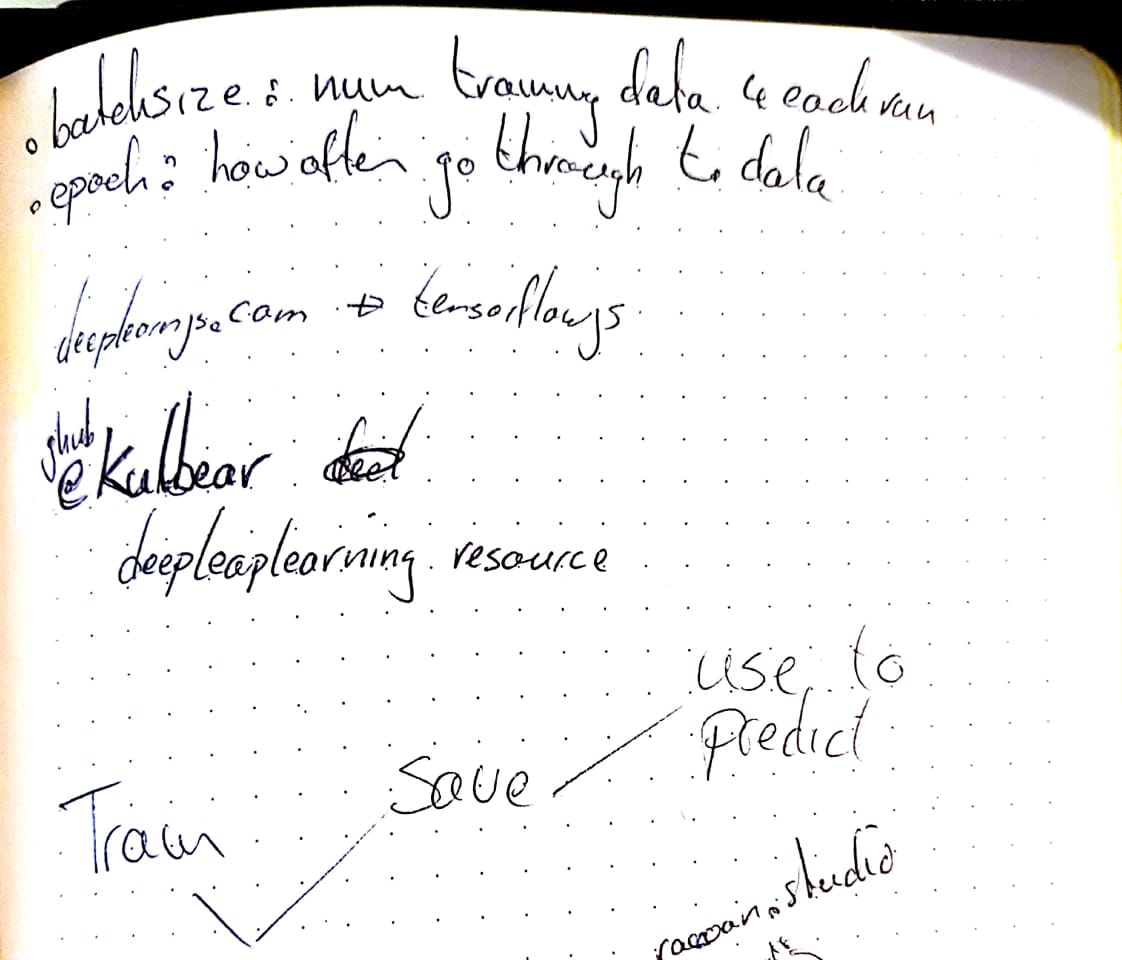 • batchsize : num training data 4 each run
• epoch : how often go through t. data
deeplearnjs.com → tensorflowjs
ghub
@Kulbear
deepleaplearning resource
use to
predict
Save
Train
.studio